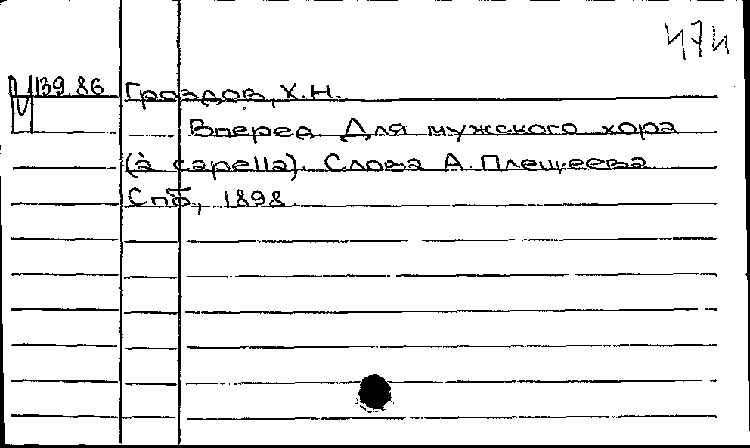 474
139.86 Гроздов, Х.Н.
Вперед. Для мужского хора
(à capella). Слова А. Плещеева
Спб, 1898.